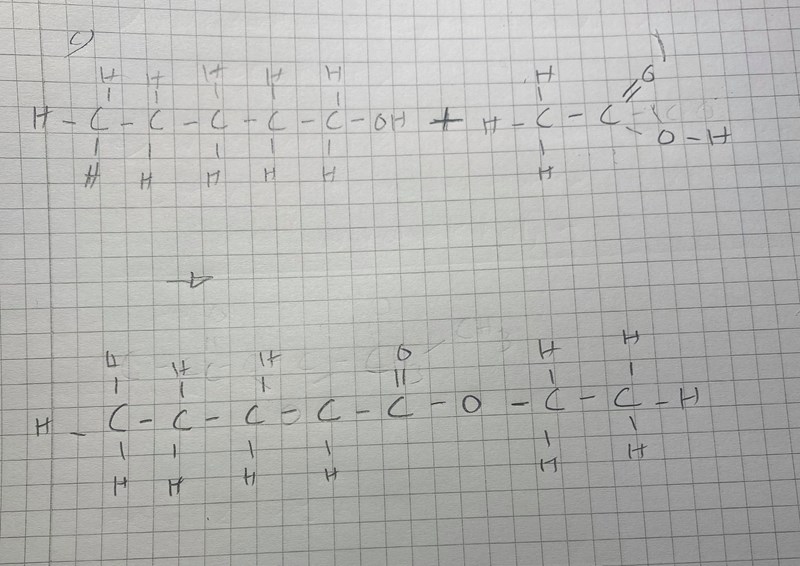 c)
H H H H H
H - C - C - C - C - C - OH + H - C - C = O
H H H H H
H
O - H
H
→
H H H O H H
H - C - C - C - C - C - O - C - C - H
H H H H H H